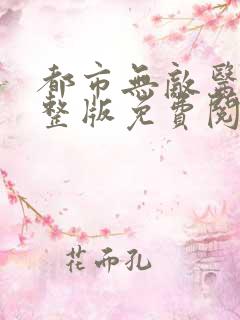 都市無敵醫
整版免費閱
花而孔